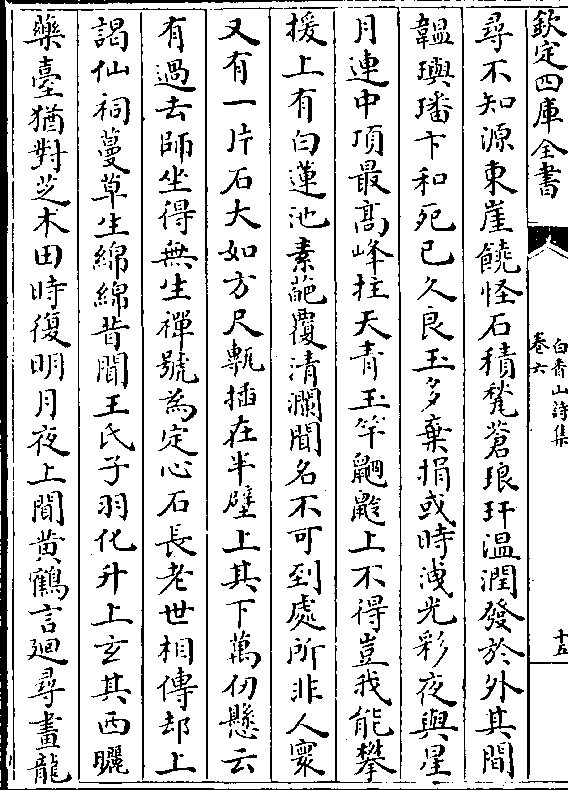 欽定四庫全書
白香山詩集
卷六
十五
尋不知源東崖饒怪石積甃蒼琅玕溫潤發於外其間
韞璵璠卞和死已久良玉多棄捐或時洩光彩夜與星
月連中項最高峰拄天青玉竿𪕭䶈上不得豈我能攀
援上有白蓮池素葩覆清瀾聞名不可到處所非人寰
又有一片石大如方尺甎插在半壁上其下萬仞懸云
有過去師坐得無生禪號為定心石長老世相傳却上
謁仙祠蔓草生綿綿昔聞王氏子羽化升上玄其西曬
藥臺猶對芝术田時復明月夜上聞黄鶴言廻尋畫龍